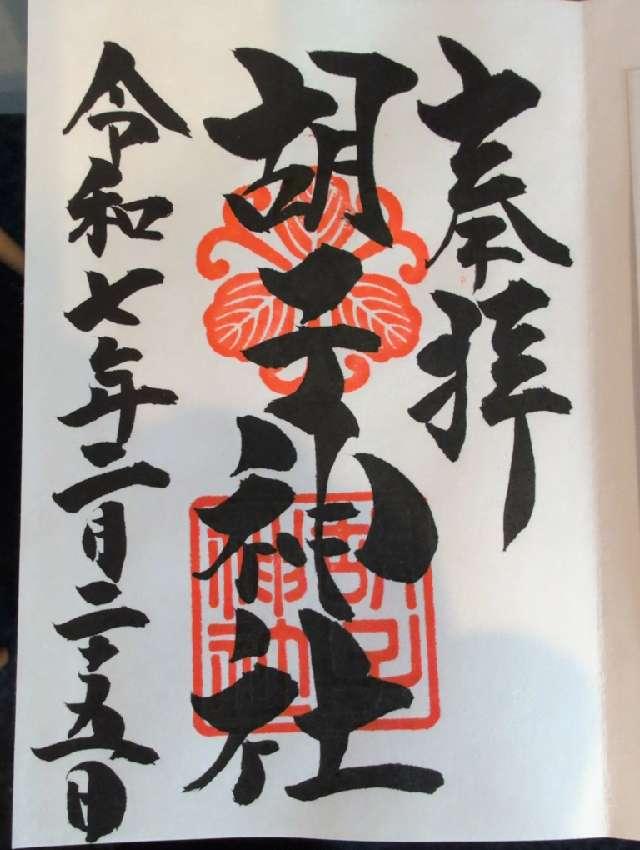 奉拝
胡子神社
令和七年二月二十五日